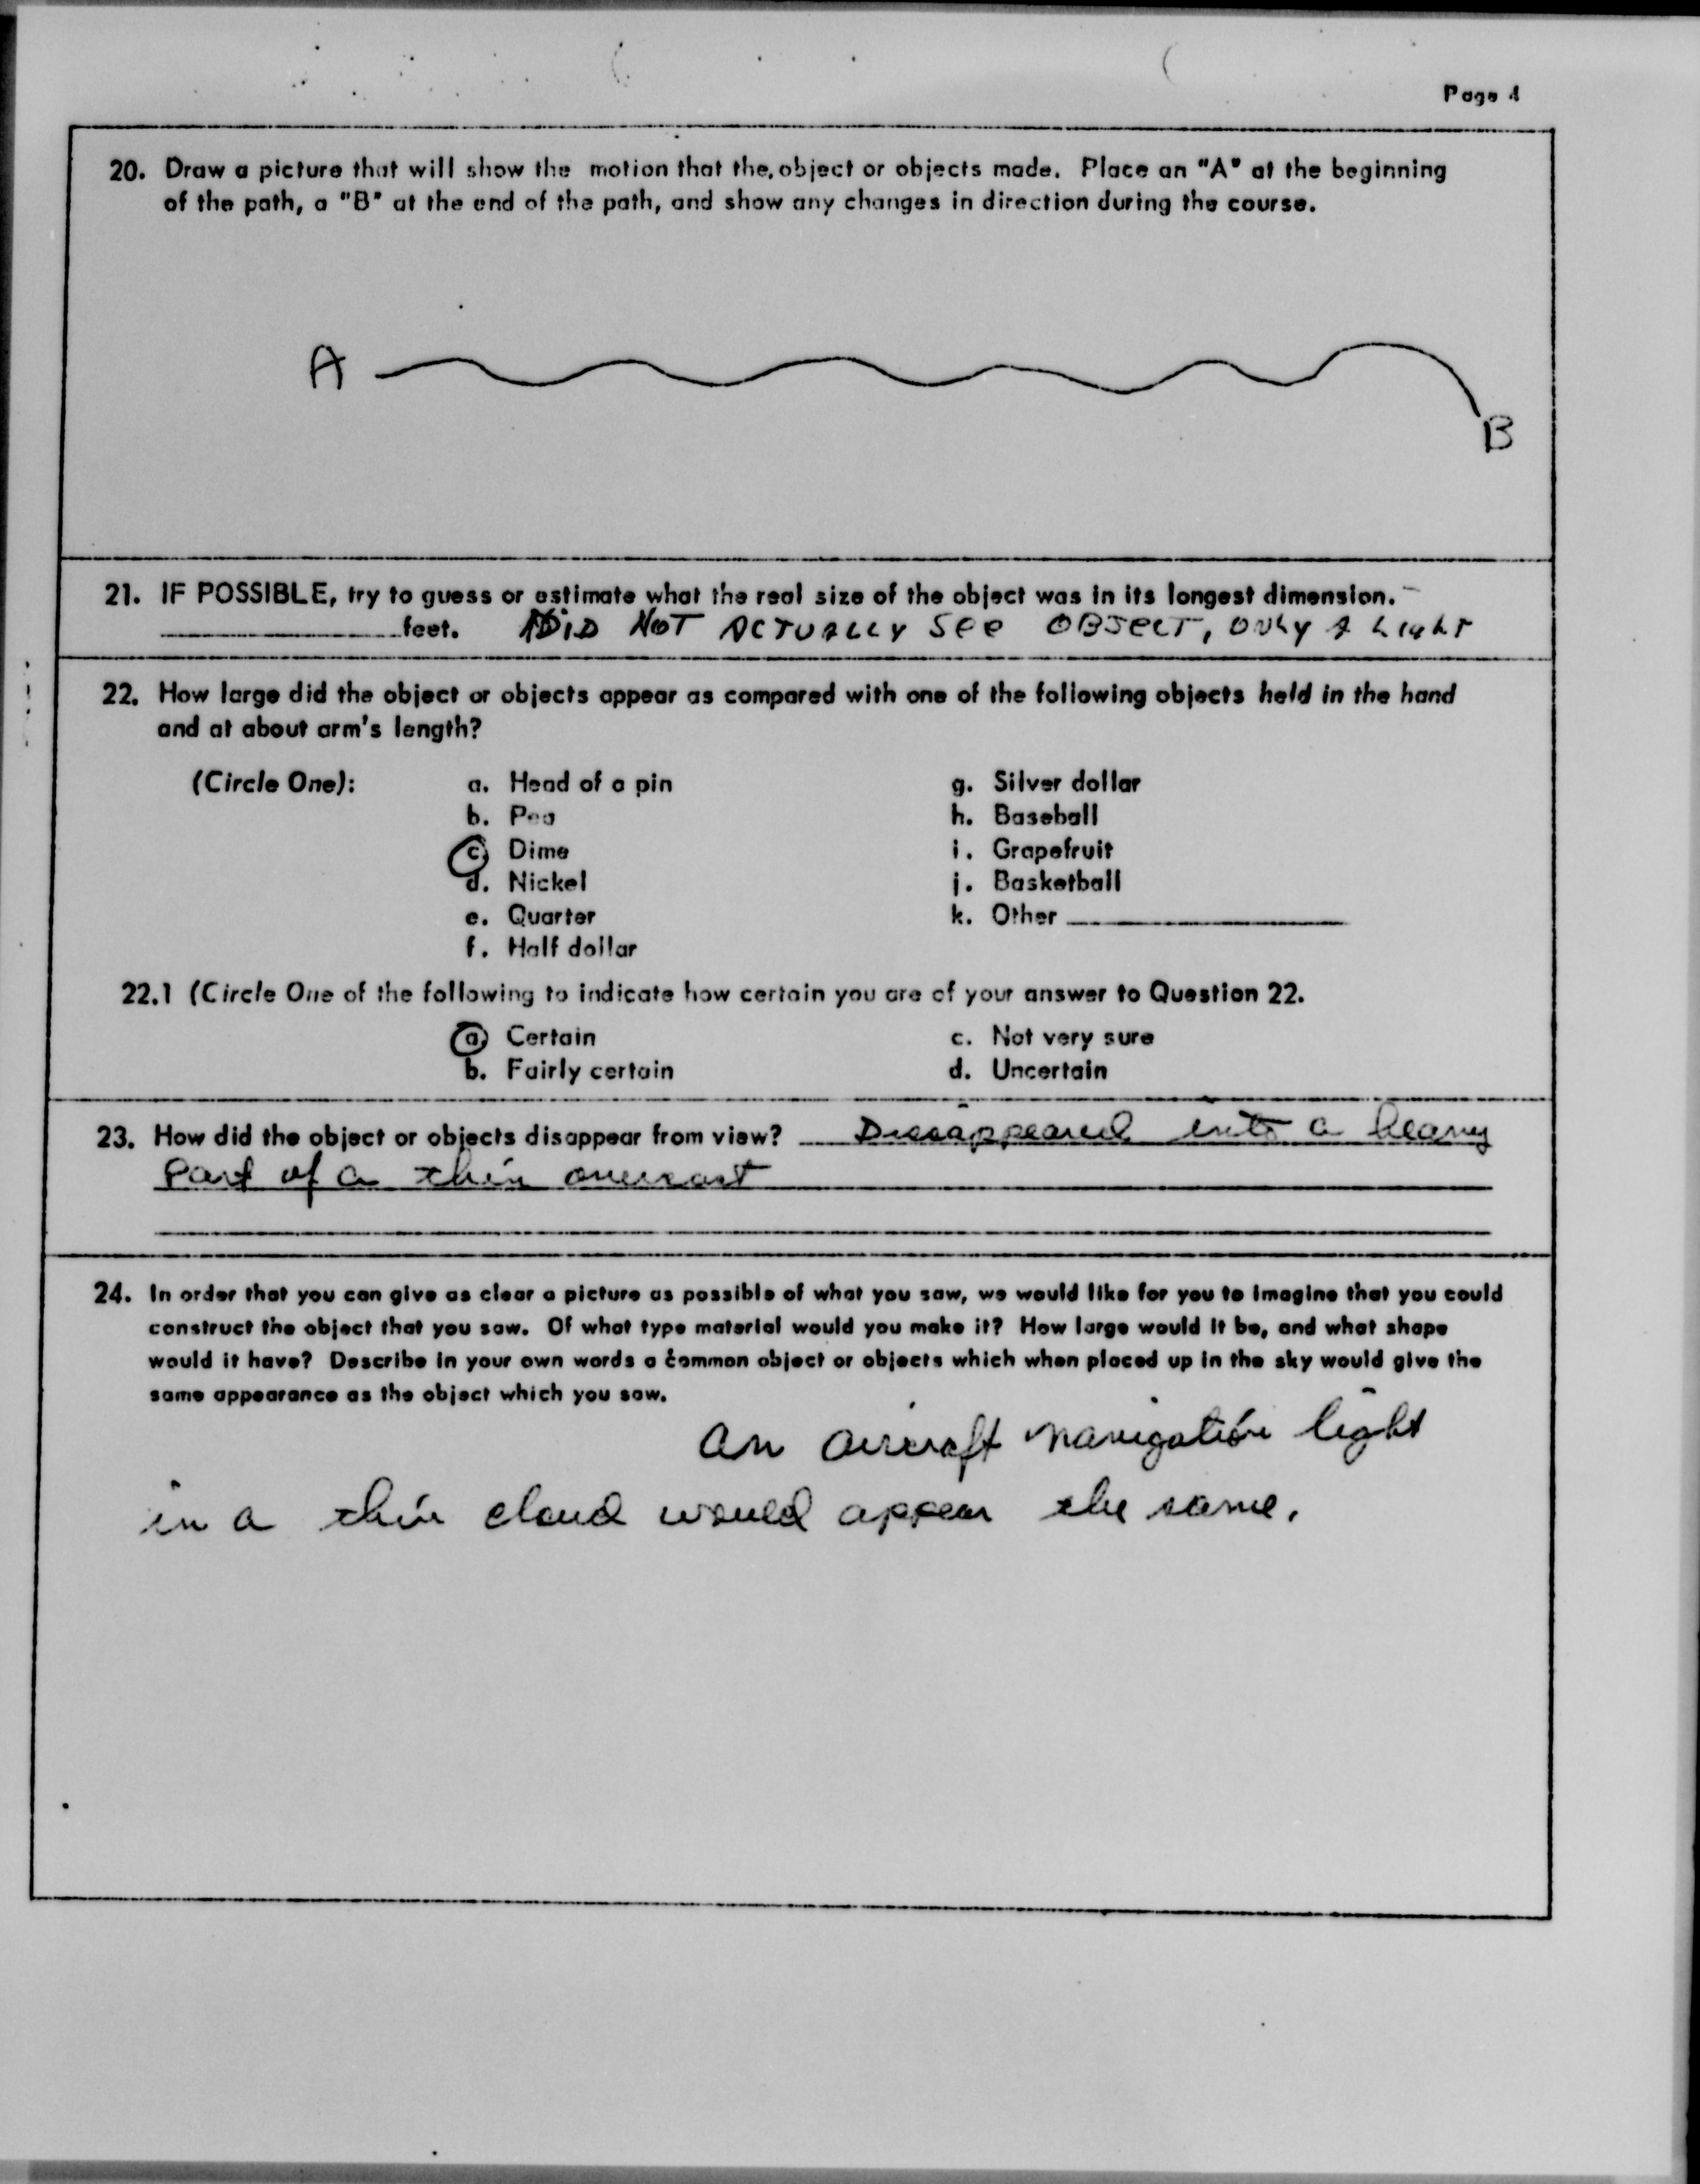 Page 4
20. Draw a picture that will show the motion that the object or objects made. Place an "A" at the beginning
of the path, a "B" at the end of the path, and show any changes in direction during the course.
A
B
21. IF POSSIBLE, try to guess or estimate what the real size of the object was in its longest dimension.
feet. DID NOT ACTUALLY SEE OBJECT, ONLY A LIGHT
22. How large did the object or objects appear as compared with one of the following objects held in the hand
and at about arm's length?
(Circle One): a. Head of a pin g. Silver dollar
b. Pea h. Baseball
c. Dime i. Grapefruit
d. Nickel j. Basketball
e. Quarter k. Other
f. Half dollar
22.1 (Circle One of the following to indicate how certain you are of your answer to Question 22.
a. Certain c. Not very sure
b. Fairly certain d. Uncertain
23. How did the object or objects disappear from view? Dissappeared into a heavy
part of a thin overcast
24. In order that you can give as clear a picture as possible of what you saw, we would like for you to imagine that you could
construct the object that you saw. Of what type material would you make it? How large would it be, and what shape
would it have? Describe in your own words a common object or objects which when placed up in the sky would give the
same appearance as the object which you saw.
An aircraft navigation light
in a thin cloud would appear the same.